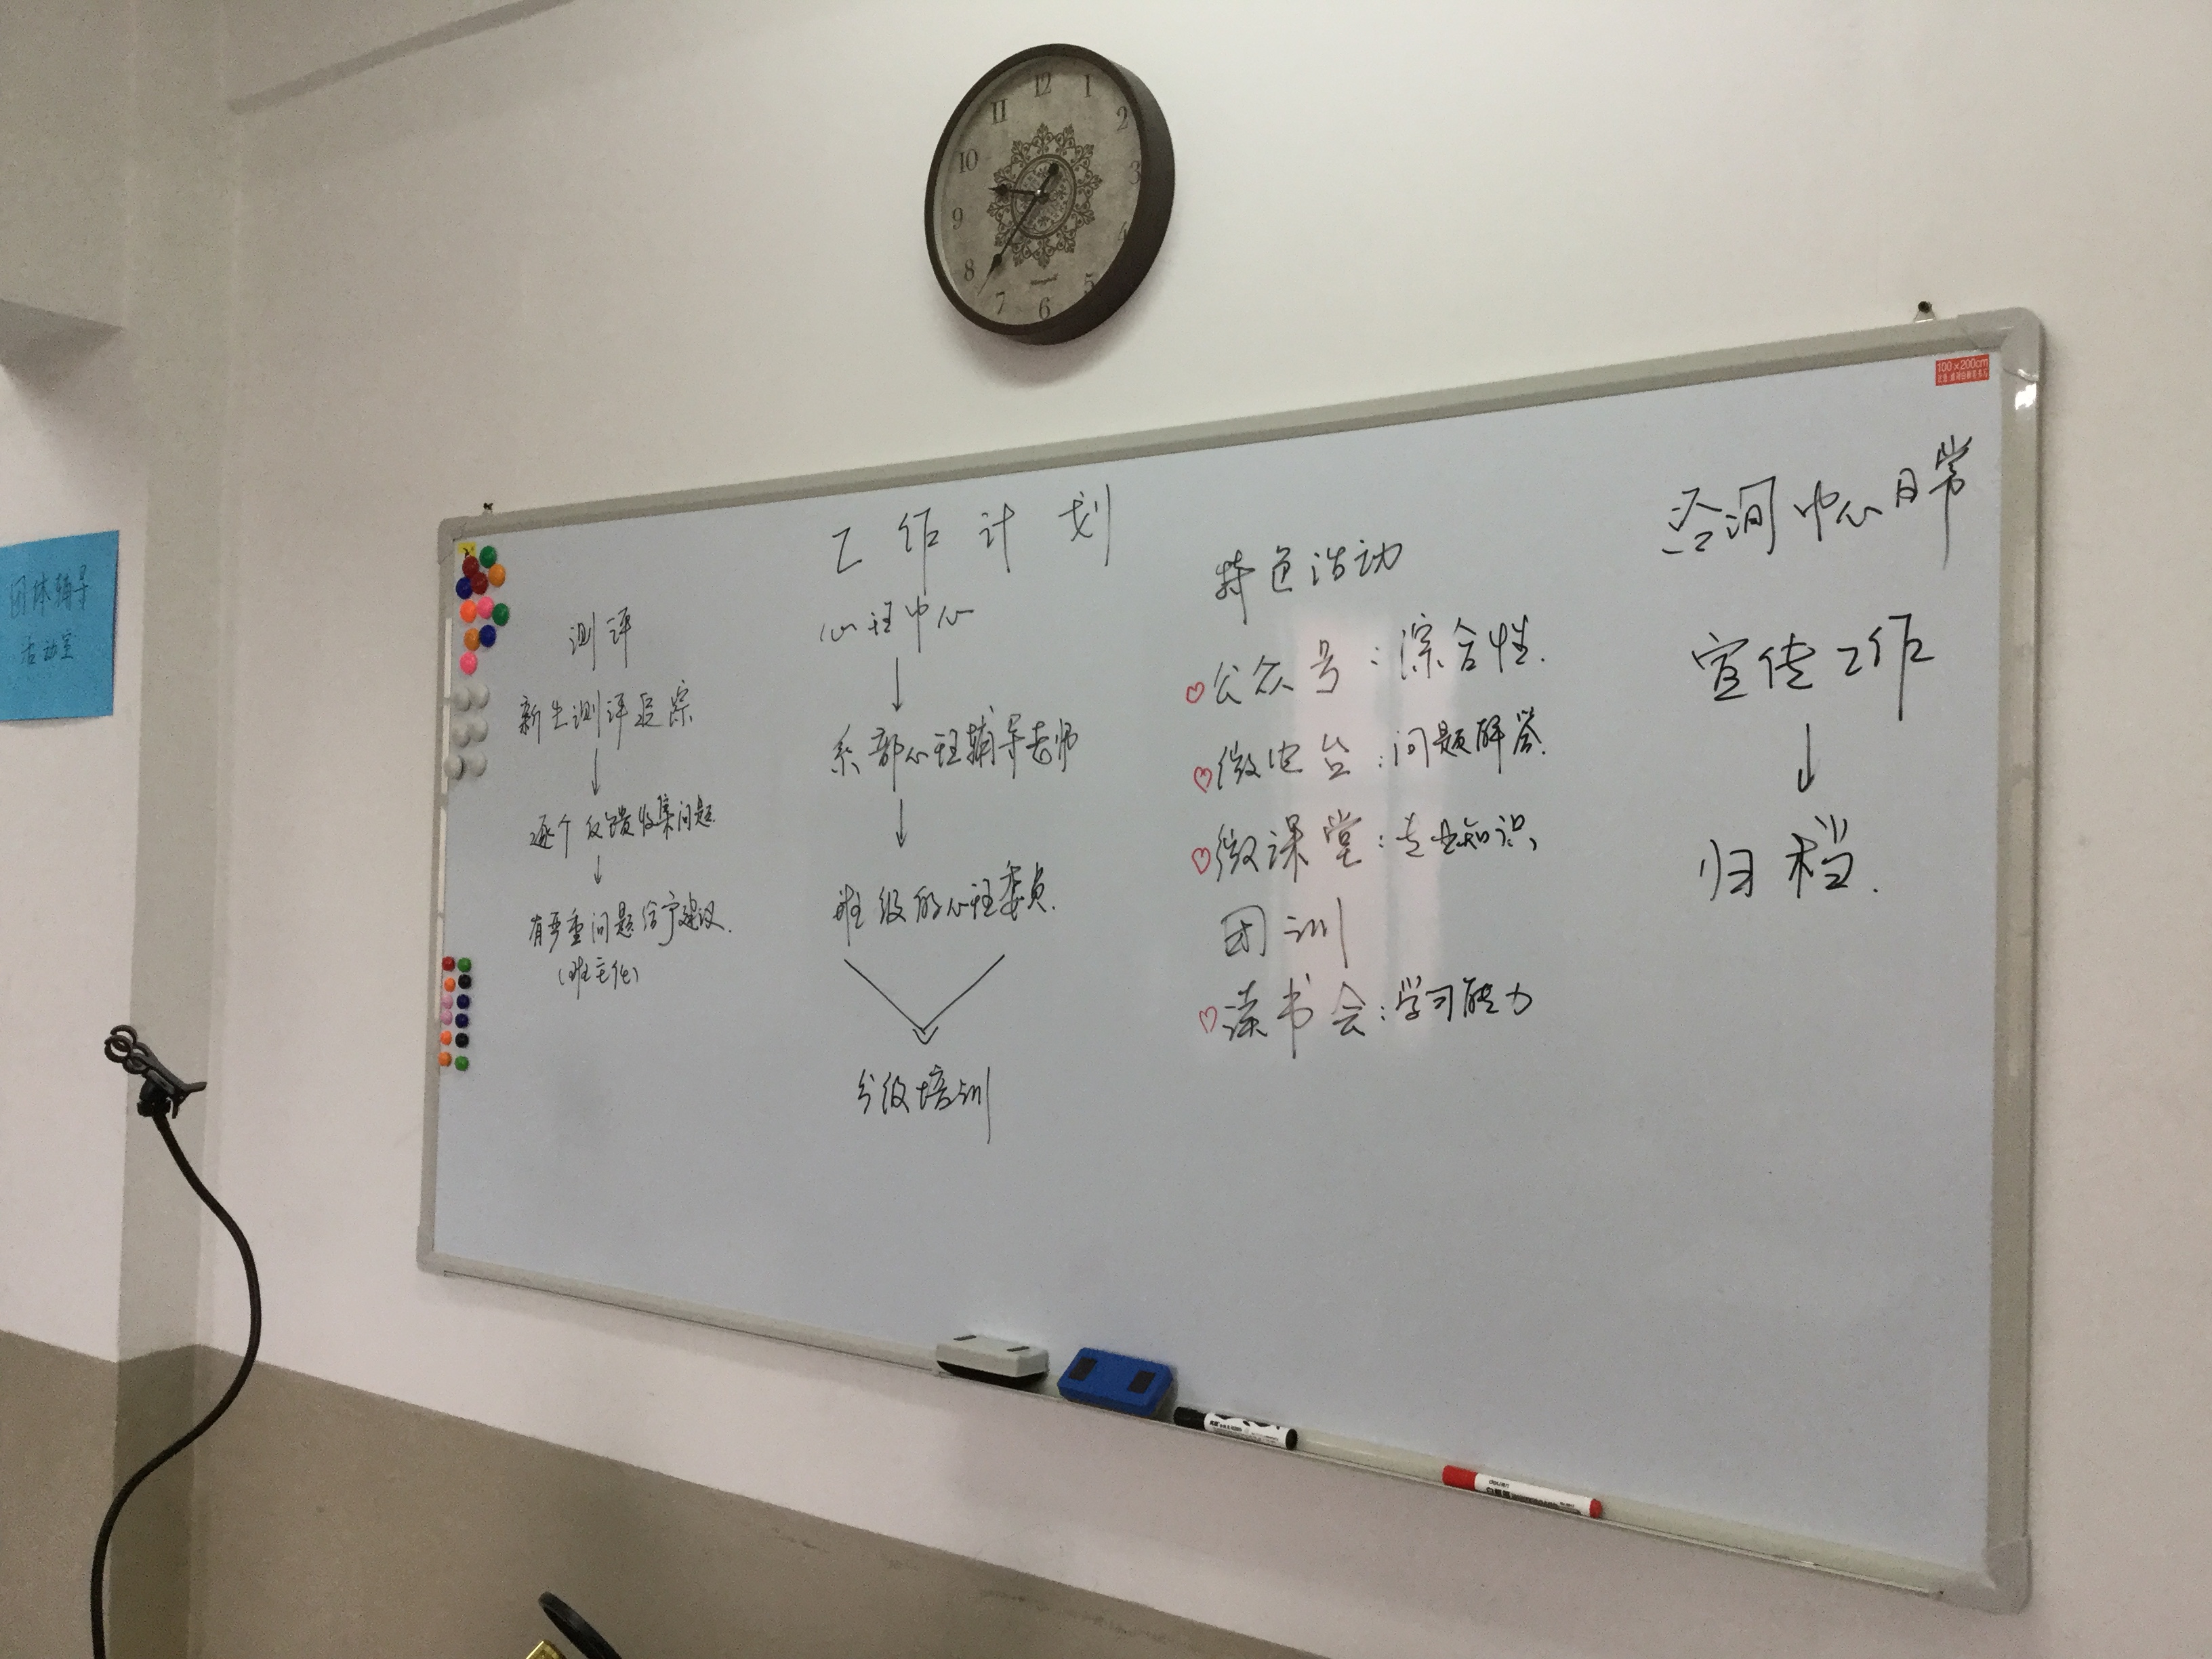 12
1
2
3
4
5
6
7
8
9
10
11
100×200cm
团体辅导
活动室
工作计划
测评
新生测评追踪
↓
逐个反馈收集问题
↓
有严重问题给予建议.
(班主任)
心理中心
↓
系部心理辅导老师
↓
班级的心理委员.
分级培训
特色活动
♡公众号:综合性.
♡微电台:问题解答.
♡微课堂:专业知识
团训
♡读书会:学习能力
咨询中心日常
宣传工作
↓
归档.